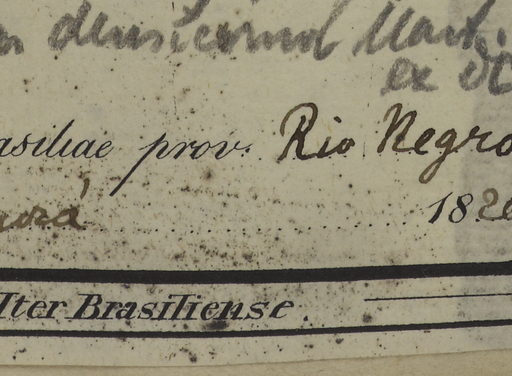 densicomum Mart.
ex
asiliae prov. Rio Negro
urá 1820
Iter Brasiliense.